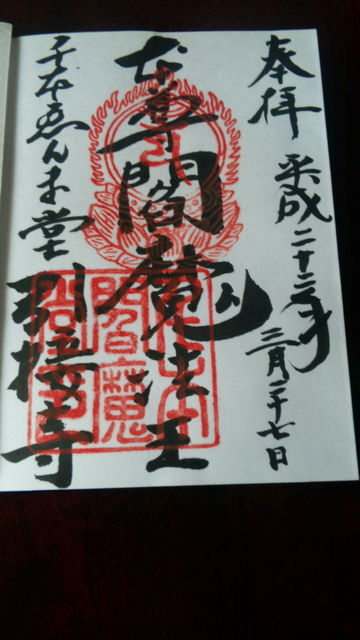 奉拝 平成二十三年
三月二十七日
本尊閻魔法王
千本ゑんま堂
引接寺
閻魔